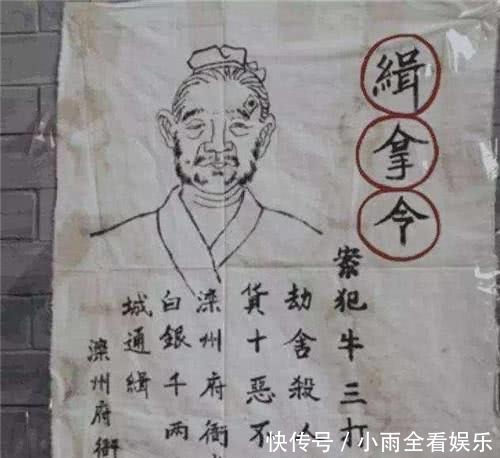 緝拿令
案犯牛三打
劫舍殺人
貨十惡不
滦州府衙
白銀千两
城通緝
滦州府衙
快传号 / 小雨全看娱乐